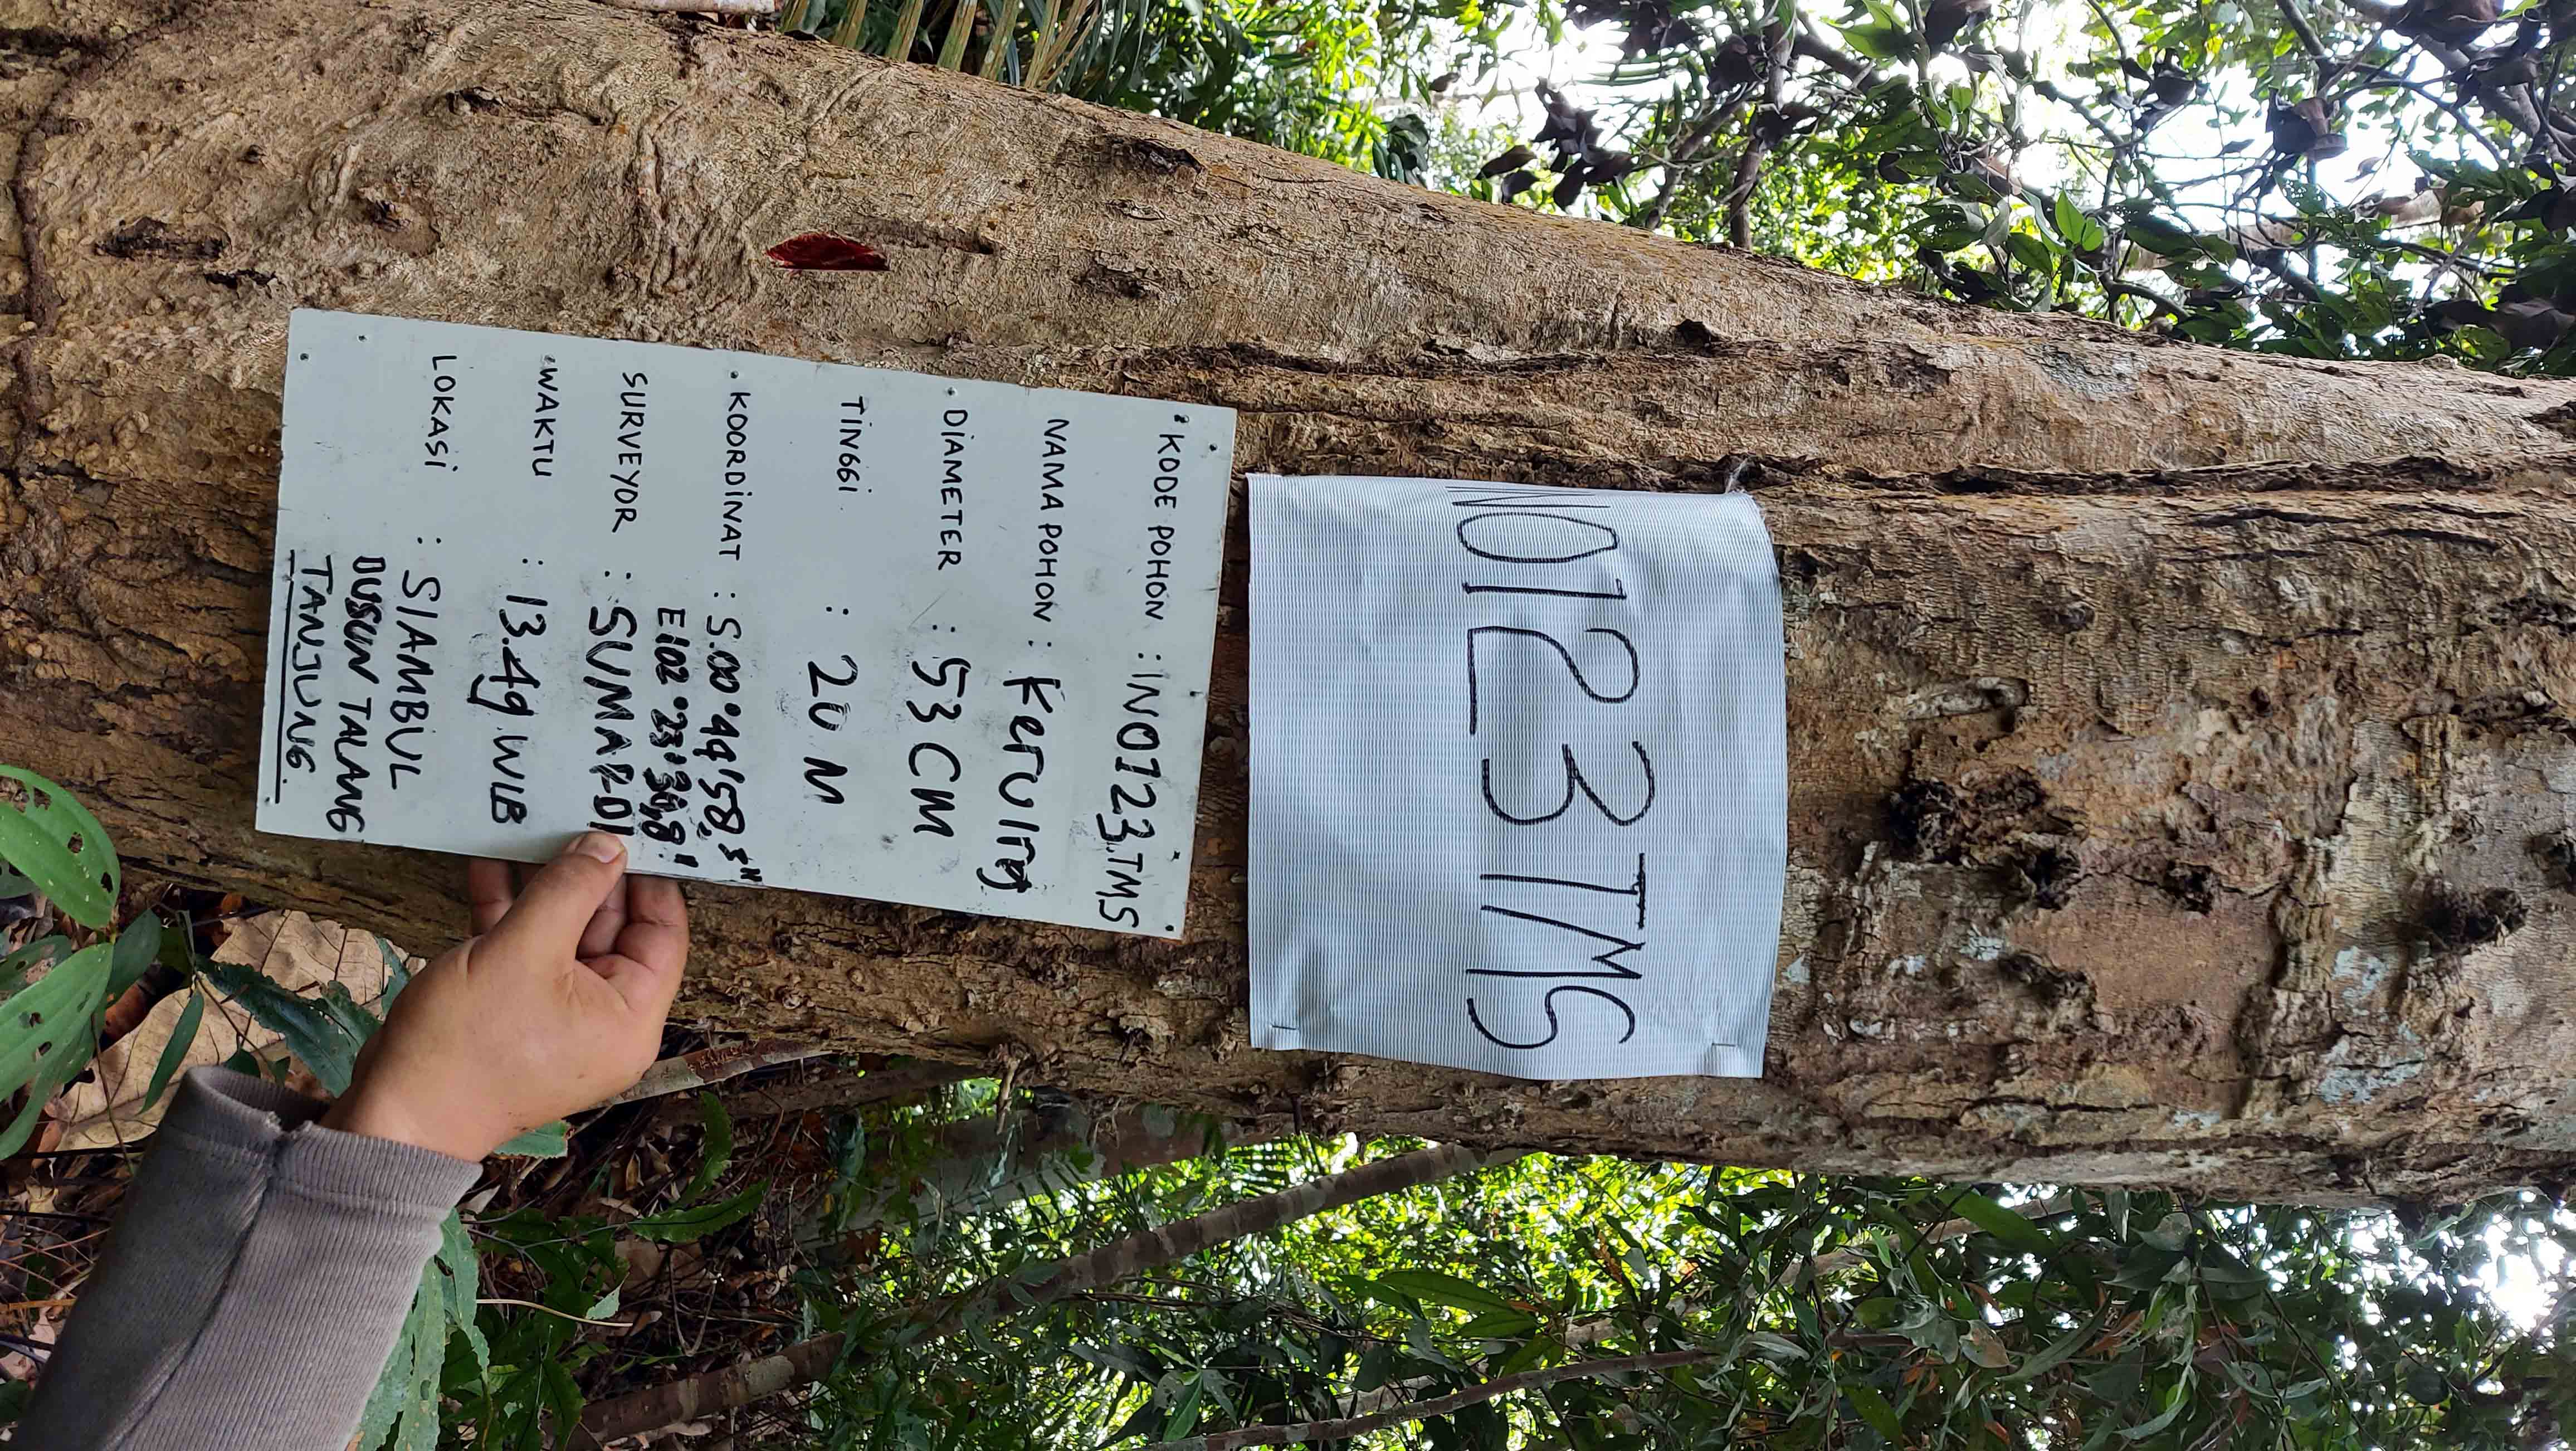 IN0123TMS
KODE POHON : IN0123.TMS
NAMA POHON : Keruing
DIAMETER : 53 CM
TINGGI : 20 M
KOORDINAT : S.00°44'58,5"
E102°23'30,8"
SURVEYOR : SUMARDI
WAKTU : 13.49 WIB
LOKASI : SIAMBUL
DUSUN TALANG
TANJUNG.